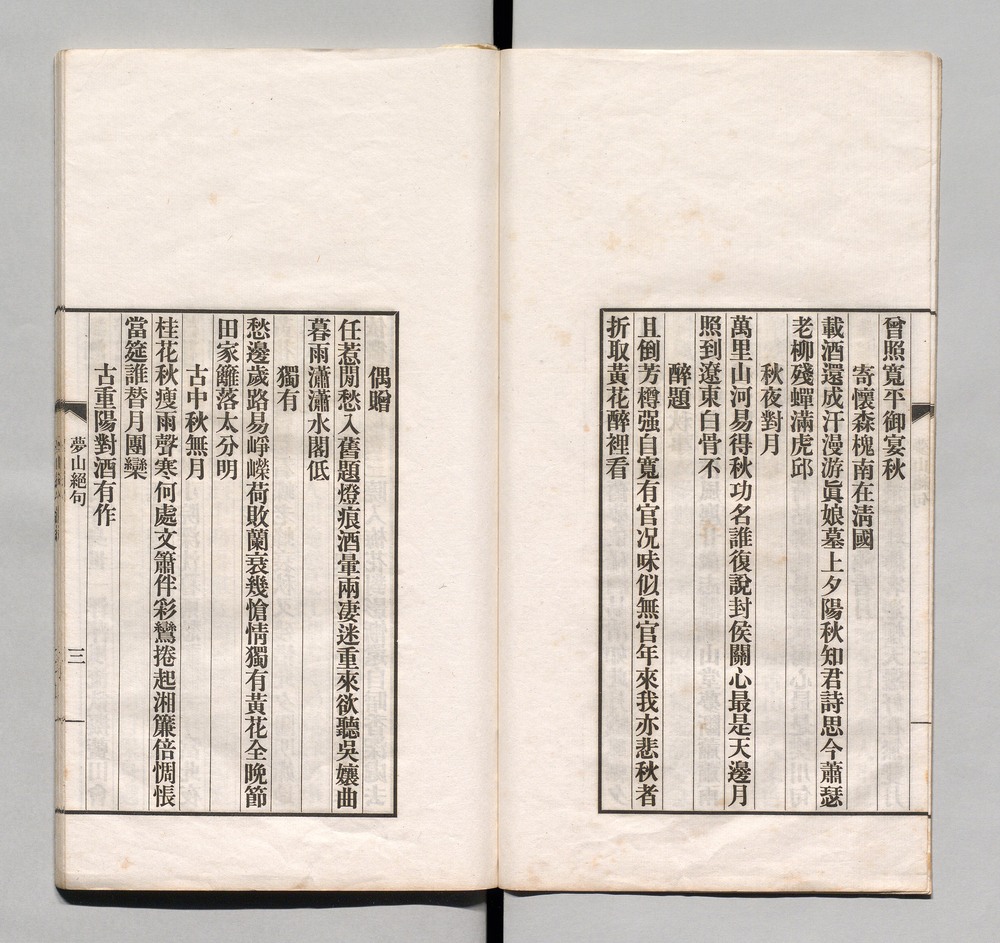 曾照寬平御宴秋
寄懷森槐南在淸國
載酒還成汗漫游眞娘墓上夕陽秋知君詩思今蕭瑟
老柳殘蟬滿虎邱
秋夜對月
萬里山河易得秋功名誰復說封侯關心最是天邊月
照到遼東白骨不
醉題
且倒芳樽强自寬有官况味似無官年來我亦悲秋者
折取黃花醉裡看
偶贈
任惹閒愁入舊題燈痕酒暈兩凄迷重來欲聽吳孃曲
暮雨瀟瀟水閣低
獨有
愁邊歲路易崢嶸荷敗蘭衰幾愴情獨有黃花全晚節
田家籬落太分明
古中秋無月
桂花秋瘦雨聲寒何處文簫伴彩鸞捲起湘簾倍惆悵
當筵誰替月團欒
古重陽對酒有作
夢山絕句
三